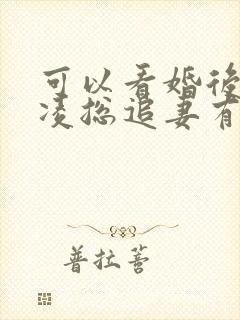 可以看婚後
凌総追妻有
普拉蒈